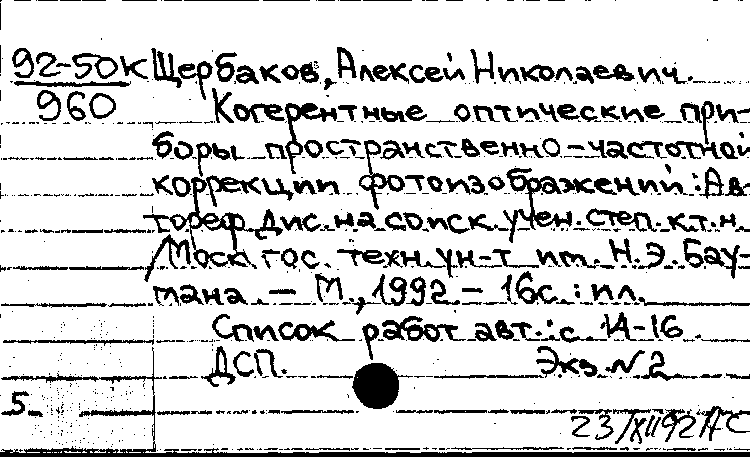 92-50К Щербаков, Алексей Николаевич.
960 Когерентные оптические при-
боры пространственно-частотной
коррекции фотоизображений: Ав-
тореф. дис. на соиск. учен. степ. к.т.н.
/Моск. гос. техн. ун-т им. Н.Э. Бау-
мана. – М., 1992. – 16с.: ил.
Список работ авт.: с. 14-16.
ДСП. Экз. N2
5
23/XII92 АС